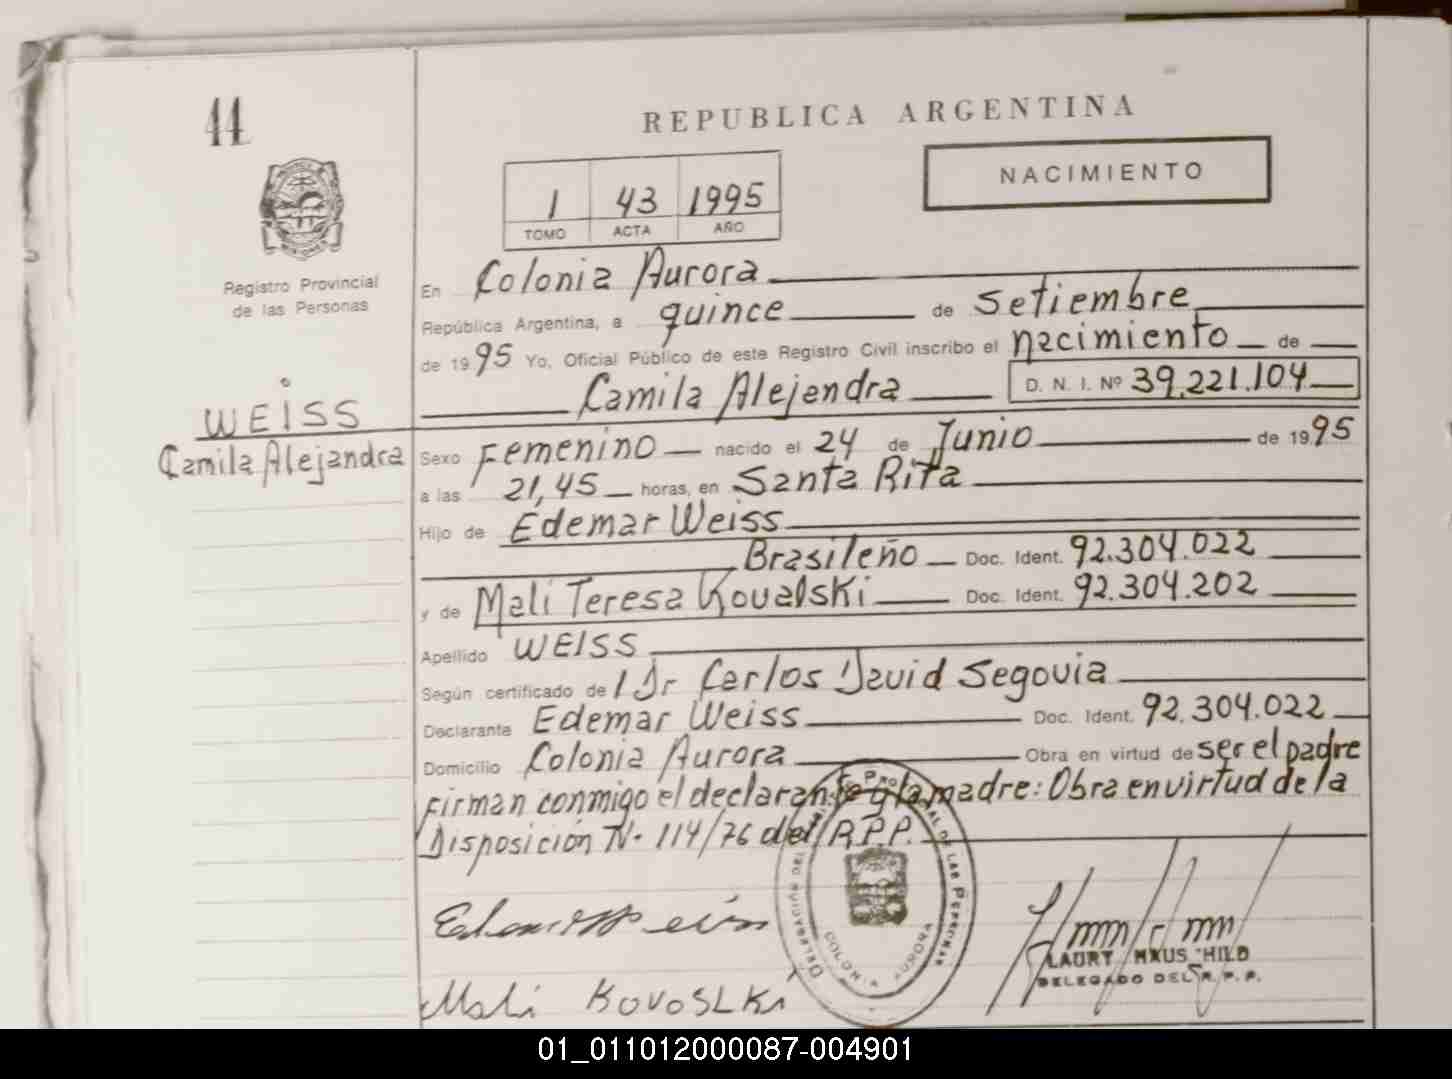 44
REPUBLICA ARGENTINA
NACIMIENTO
1 43 1995
TOMO ACTA AÑO
Registro Provincial
de las Personas
WEISS
Camila Alejandra
En Colonia Aurora
República Argentina, a quince de Setiembre
de 1995 Yo, Oficial Público de este Registro Civil inscribo el nacimiento de
Camila Alejendra D. N. I. Nº 39.221.104
Sexo Femenino nacido el 24 de Junio de 1995
a las 21,45 horas, en Santa Rita
Hijo de Edemar Weiss
Brasileño Doc. Ident. 92.304.022
y de Mali Teresa Kovalski Doc. Ident. 92.304.202
Apellido WEISS
Según certificado de l Dr Carlos David Segovia
Declarante Edemar Weiss Doc. Ident. 92.304.022
Domicilio Colonia Aurora Obra en virtud de ser el padre
Firman conmigo el declarante y la madre: Obra en virtud de la
Disposición Nº 114/76 del R.P.P.
PROVINCIAL DE LAS PERSONAS
COLONIA AURORA
Mali KOVOSLKi
LAURY
DELEGADO DEL R. P. P.
01_011012000087-004901